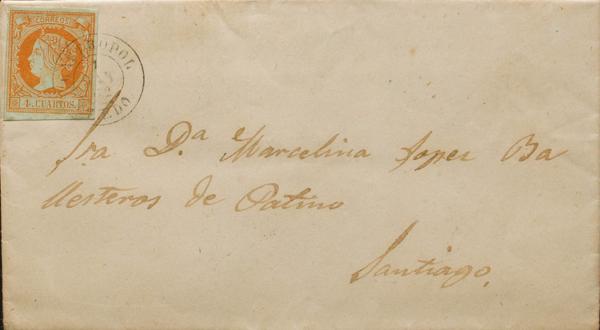 CORREOS
4 CUARTOS
Sra D.a Marcelina Lopez Ba
llesteros de Patiño
Santiago.